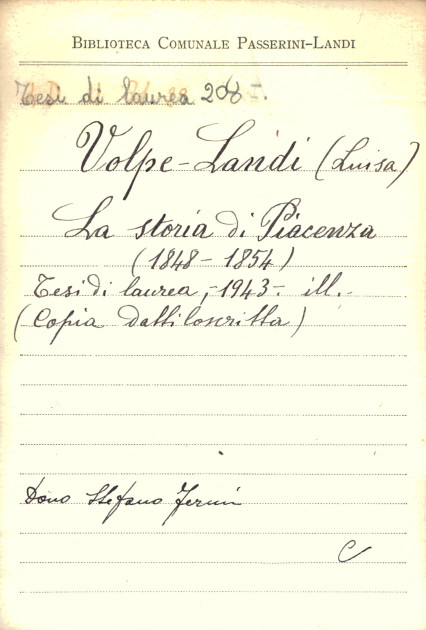 BIBLIOTECA COMUNALE PASSERINI-LANDI
Tesi di laurea 208
Volpe-Landi (Luisa)
La storia di Piacenza
(1848 - 1854)
Tesi di laurea, - 1943 - ill. -
(Copia dattiloscritta)
Dono Stefano Fermi
C